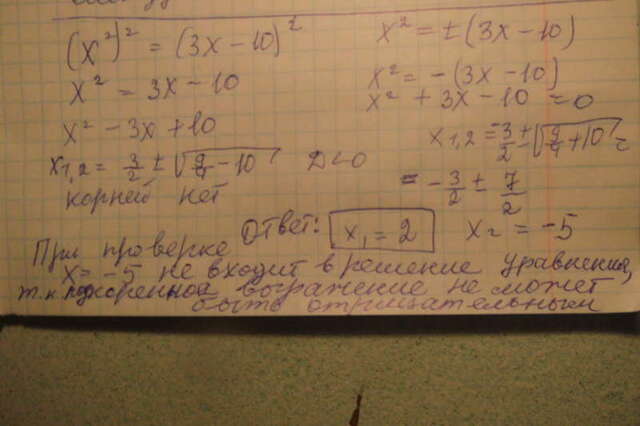 (x²)² = (3x - 10)²
x² = ± (3x - 10)
x² = 3x - 10
x² = - (3x - 10)
x² + 3x - 10 = 0
x² - 3x + 10
x₁,₂ = -3/2 ± √(9/4 + 10) =
x₁,₂ = 3/2 ± √(9/4 - 10) D<0
= -3/2 ± 7/2
корней нет
Ответ: x₁ = 2 x₂ = -5
При проверке
x = -5 не входит в решение уравнения,
т.к. подкоренное выражение не может
быть отрицательным